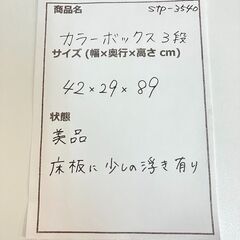 商品名 stp-3540
カラーボックス 3段
サイズ (幅×奥行×高さ cm)
42×29×89
状態
美品
床板に少しの浮き有り